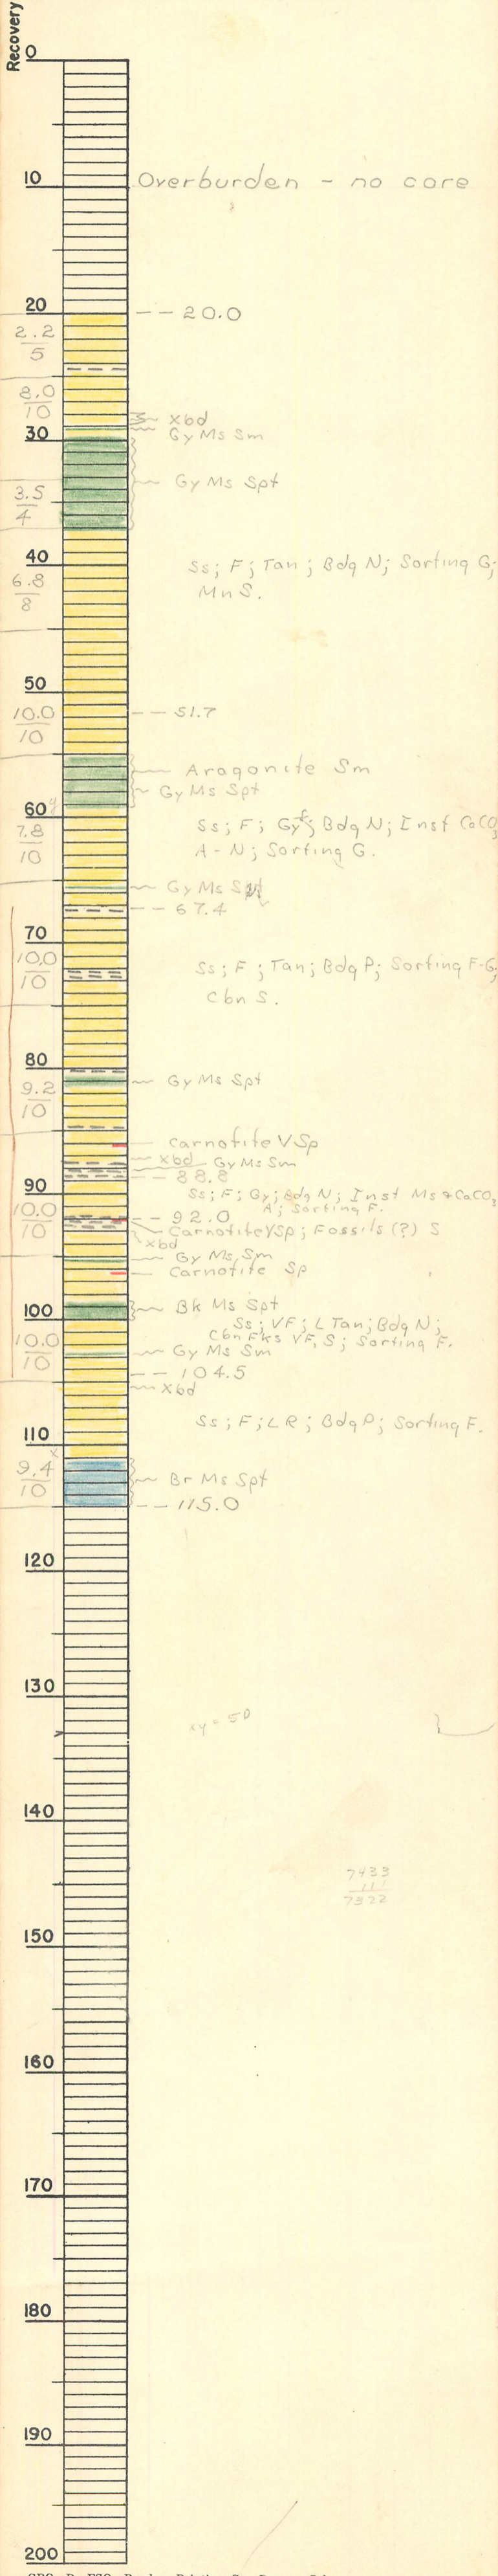 Recovery
0
10 Overburden - no core
20 -- 20.0
2.2
5
8.0
10
Xbd
30 Gy Ms Sm
Gy Ms Spt
3.5
4
40 Ss; F; Tan; Bdg N; Sorting G;
Mn S.
6.8
8
50
10.0 -- 51.7
10
Aragonite Sm
Gy Ms Spt
60 Ss; F; Gy; Bdg N; Inst CaCO3
A-N; Sorting G.
7.8
10
Gy Ms
-- 67.4
70
10.0 Ss; F; Tan; Bdg P; Sorting F-G;
10 Cbn S.
80
Gy Ms Spt
9.2
10
Carnotite VSp
Xbd Gy Ms Sm
-- 88.8
90 Ss; F; Gy; Bdg N; Inst Ms & CaCO3
A; Sorting F.
10.0 -- 92.0
10 Carnotite VSp; Fossils (?) S
Xbd
Gy Ms Sm
Carnotite Sp
100 Bk Ms Spt
Ss; VF; L Tan; Bdg N;
Cbn Fks VF, S; Sorting F.
10.0 Gy Ms Sm
10
-- 104.5
Xbd
Ss; F; LR; Bdg P; Sorting F.
110
x
9.4
10
Br Ms Spt
-- 115.0
120
130
= 50
140
7433
111
7322
150
160
170
180
190
200